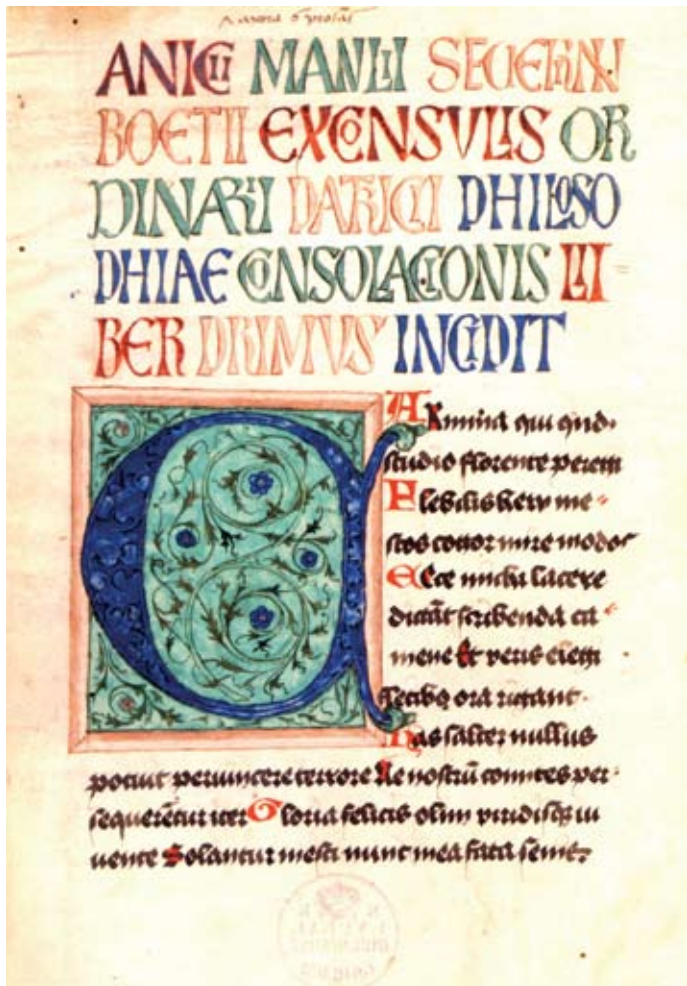 ANICII MANLII SEVERINI
BOETII EXCONSULIS OR
DINARII PATRICII PHILOSO
PHIAE CONSOLACIONIS LI
BER PRIMUS INCIPIT
Armina qui qnd
studio florente peregi
Flebilis heu me
stos cogor inire modos
Ecce michi lacere
dictāt scribenda ca
mene Et veris elegi
fletibꝫ ora rigant
has saltē nullus
potuit pervincere terrore Ne nostrū comites per
sequerētur iter Gloria felicis olim viridisqꝫ iu
vente Solantur mesti nunc mea fata senis